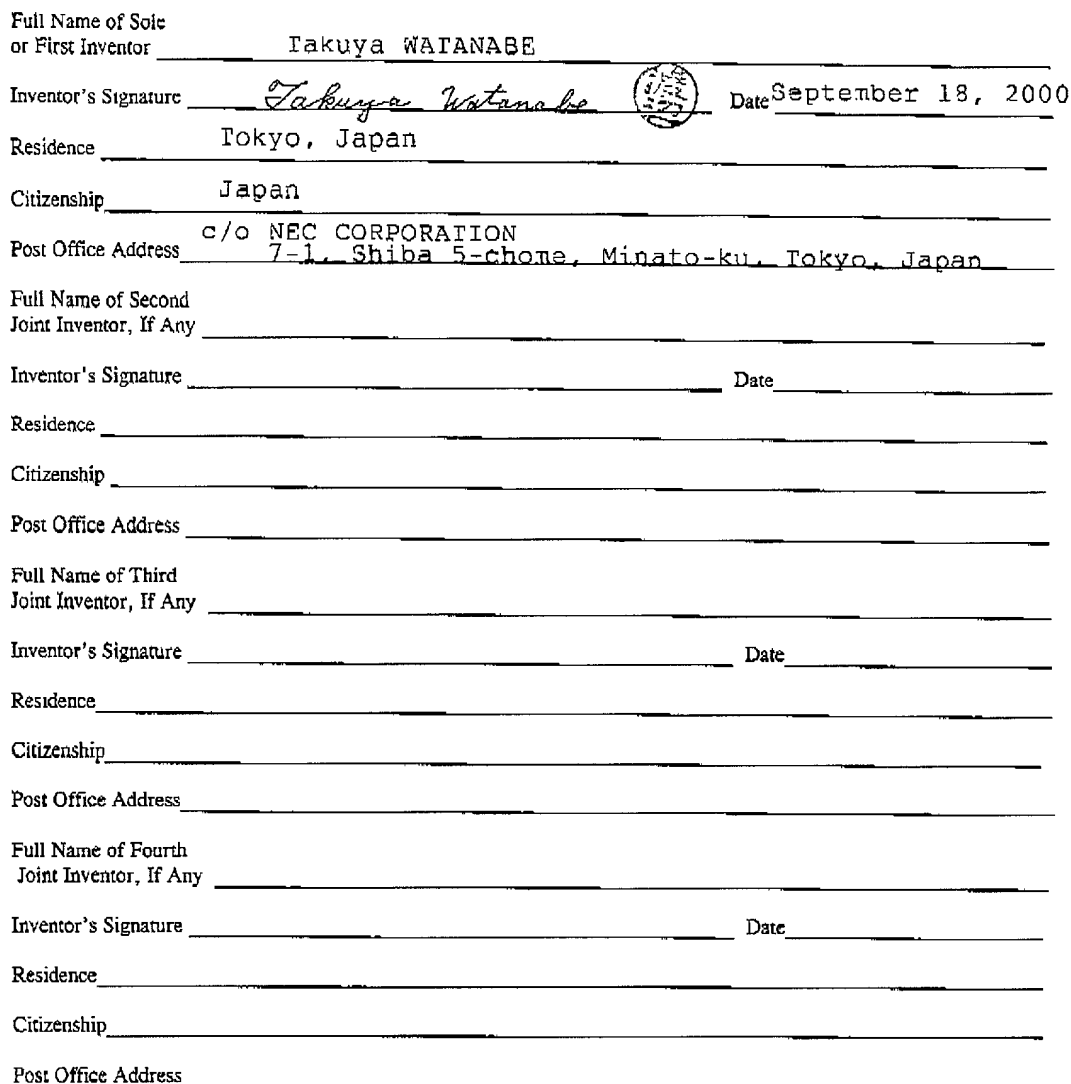 Full Name of Sole
or First Inventor Takuya WATANABE
Inventor's Signature Takuya Watanabe Date September 18, 2000
Residence Tokyo, Japan
Citizenship Japan
c/o NEC CORPORATION
Post Office Address 7-1, Shiba 5-chome, Minato-ku, Tokyo, Japan
Full Name of Second
Joint Inventor, If Any
Inventor's Signature Date
Residence
Citizenship
Post Office Address
Full Name of Third
Joint Inventor, If Any
Inventor's Signature Date
Residence
Citizenship
Post Office Address
Full Name of Fourth
Joint Inventor, If Any
Inventor's Signature Date
Residence
Citizenship
Post Office Address